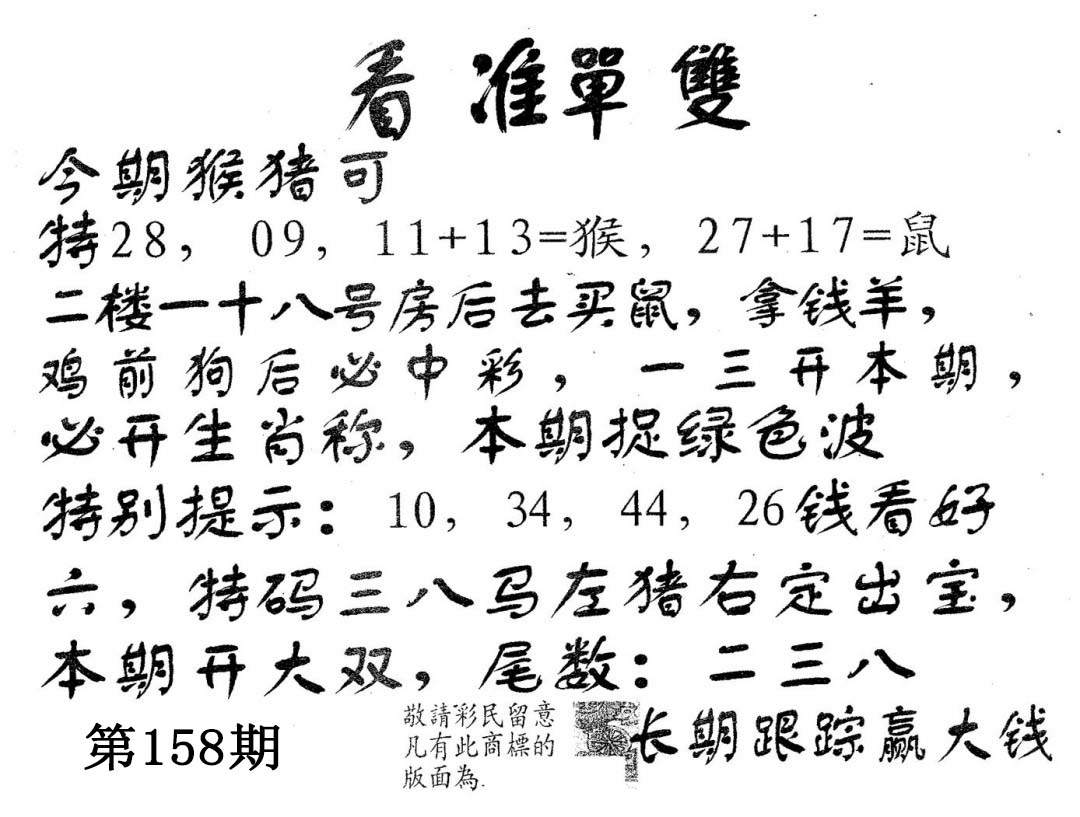 看准單雙
今期猴猪可
特28，09，11+13=猴，27+17=鼠
二楼一十八号房后去买鼠，拿钱羊，
鸡前狗后必中彩，一三开本期，
必开生肖称，本期捉绿色波
特别提示：10，34，44，26钱看好
六，特码三八马左猪右定出宝，
本期开大双，尾数：二三八
第158期
敬請彩民留意
凡有此商標的
版面為.
长期跟踪赢大钱